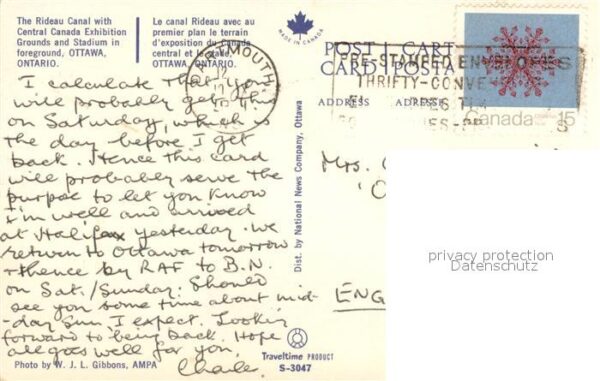 The Rideau Canal with
Central Canada Exhibition
Grounds and Stadium in
foreground, OTTAWA,
ONTARIO.
Le canal Rideau avec au
premier plan le terrain
d'exposition du Canada
central et le stade.
OTTAWA, ONTARIO.
I calculate that you
will probably get this
on Saturday, which is
the day before I get
back. Hence this card
will probably serve the
purpose to let you know
I'm well and arrived
at Halifax yesterday. We
return to Ottawa tomorrow
+ thence by RAF to B.N.
on Sat./Sunday. Should
see you some time about mid-
-day Sun, I expect. Looking
forward to being back. Hope
all goes well for you,
Charle.
Photo by W. J. L. Gibbons, AMPA
Dist. by National News Company, Ottawa
MADE IN CANADA
POST CARTE
CARD POSTA
ADDRESS ADRESSE
MOUTH
PRE-STAMPED ENVELOPES
THRIFTY-CONVE
Canada 15
Mrs.
ENG
privacy protection
Datenschutz
Traveltime PRODUCT
S-3047